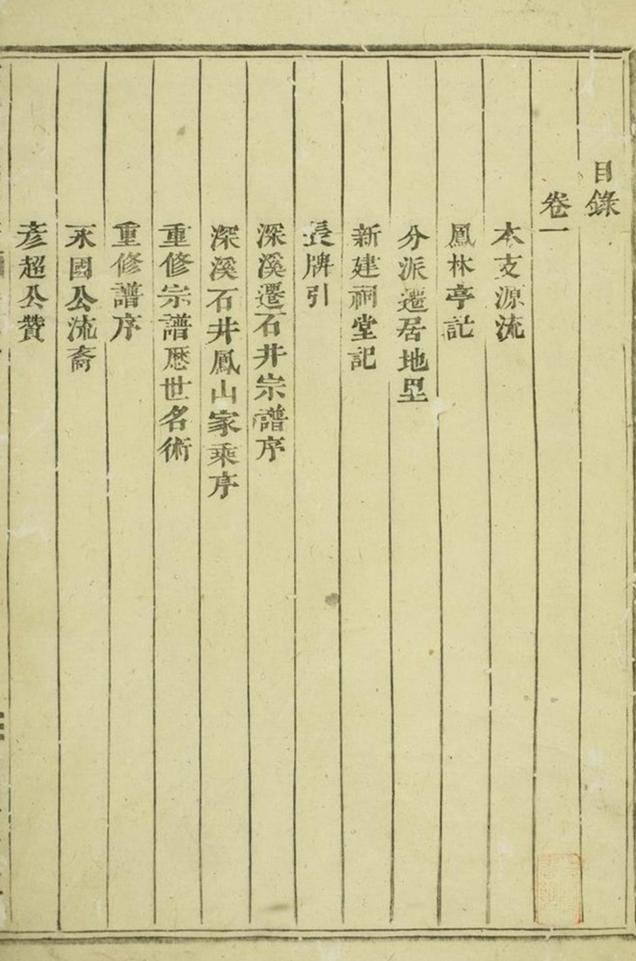 目錄
卷一
本支源流
鳳林亭記
分派遷居地里
新建祠堂記
長牌引
深溪遷石井宗譜序
深溪石井鳳山家乘序
重修宗譜歷世名術
重修譜序
永國公流裔
彥超公贊